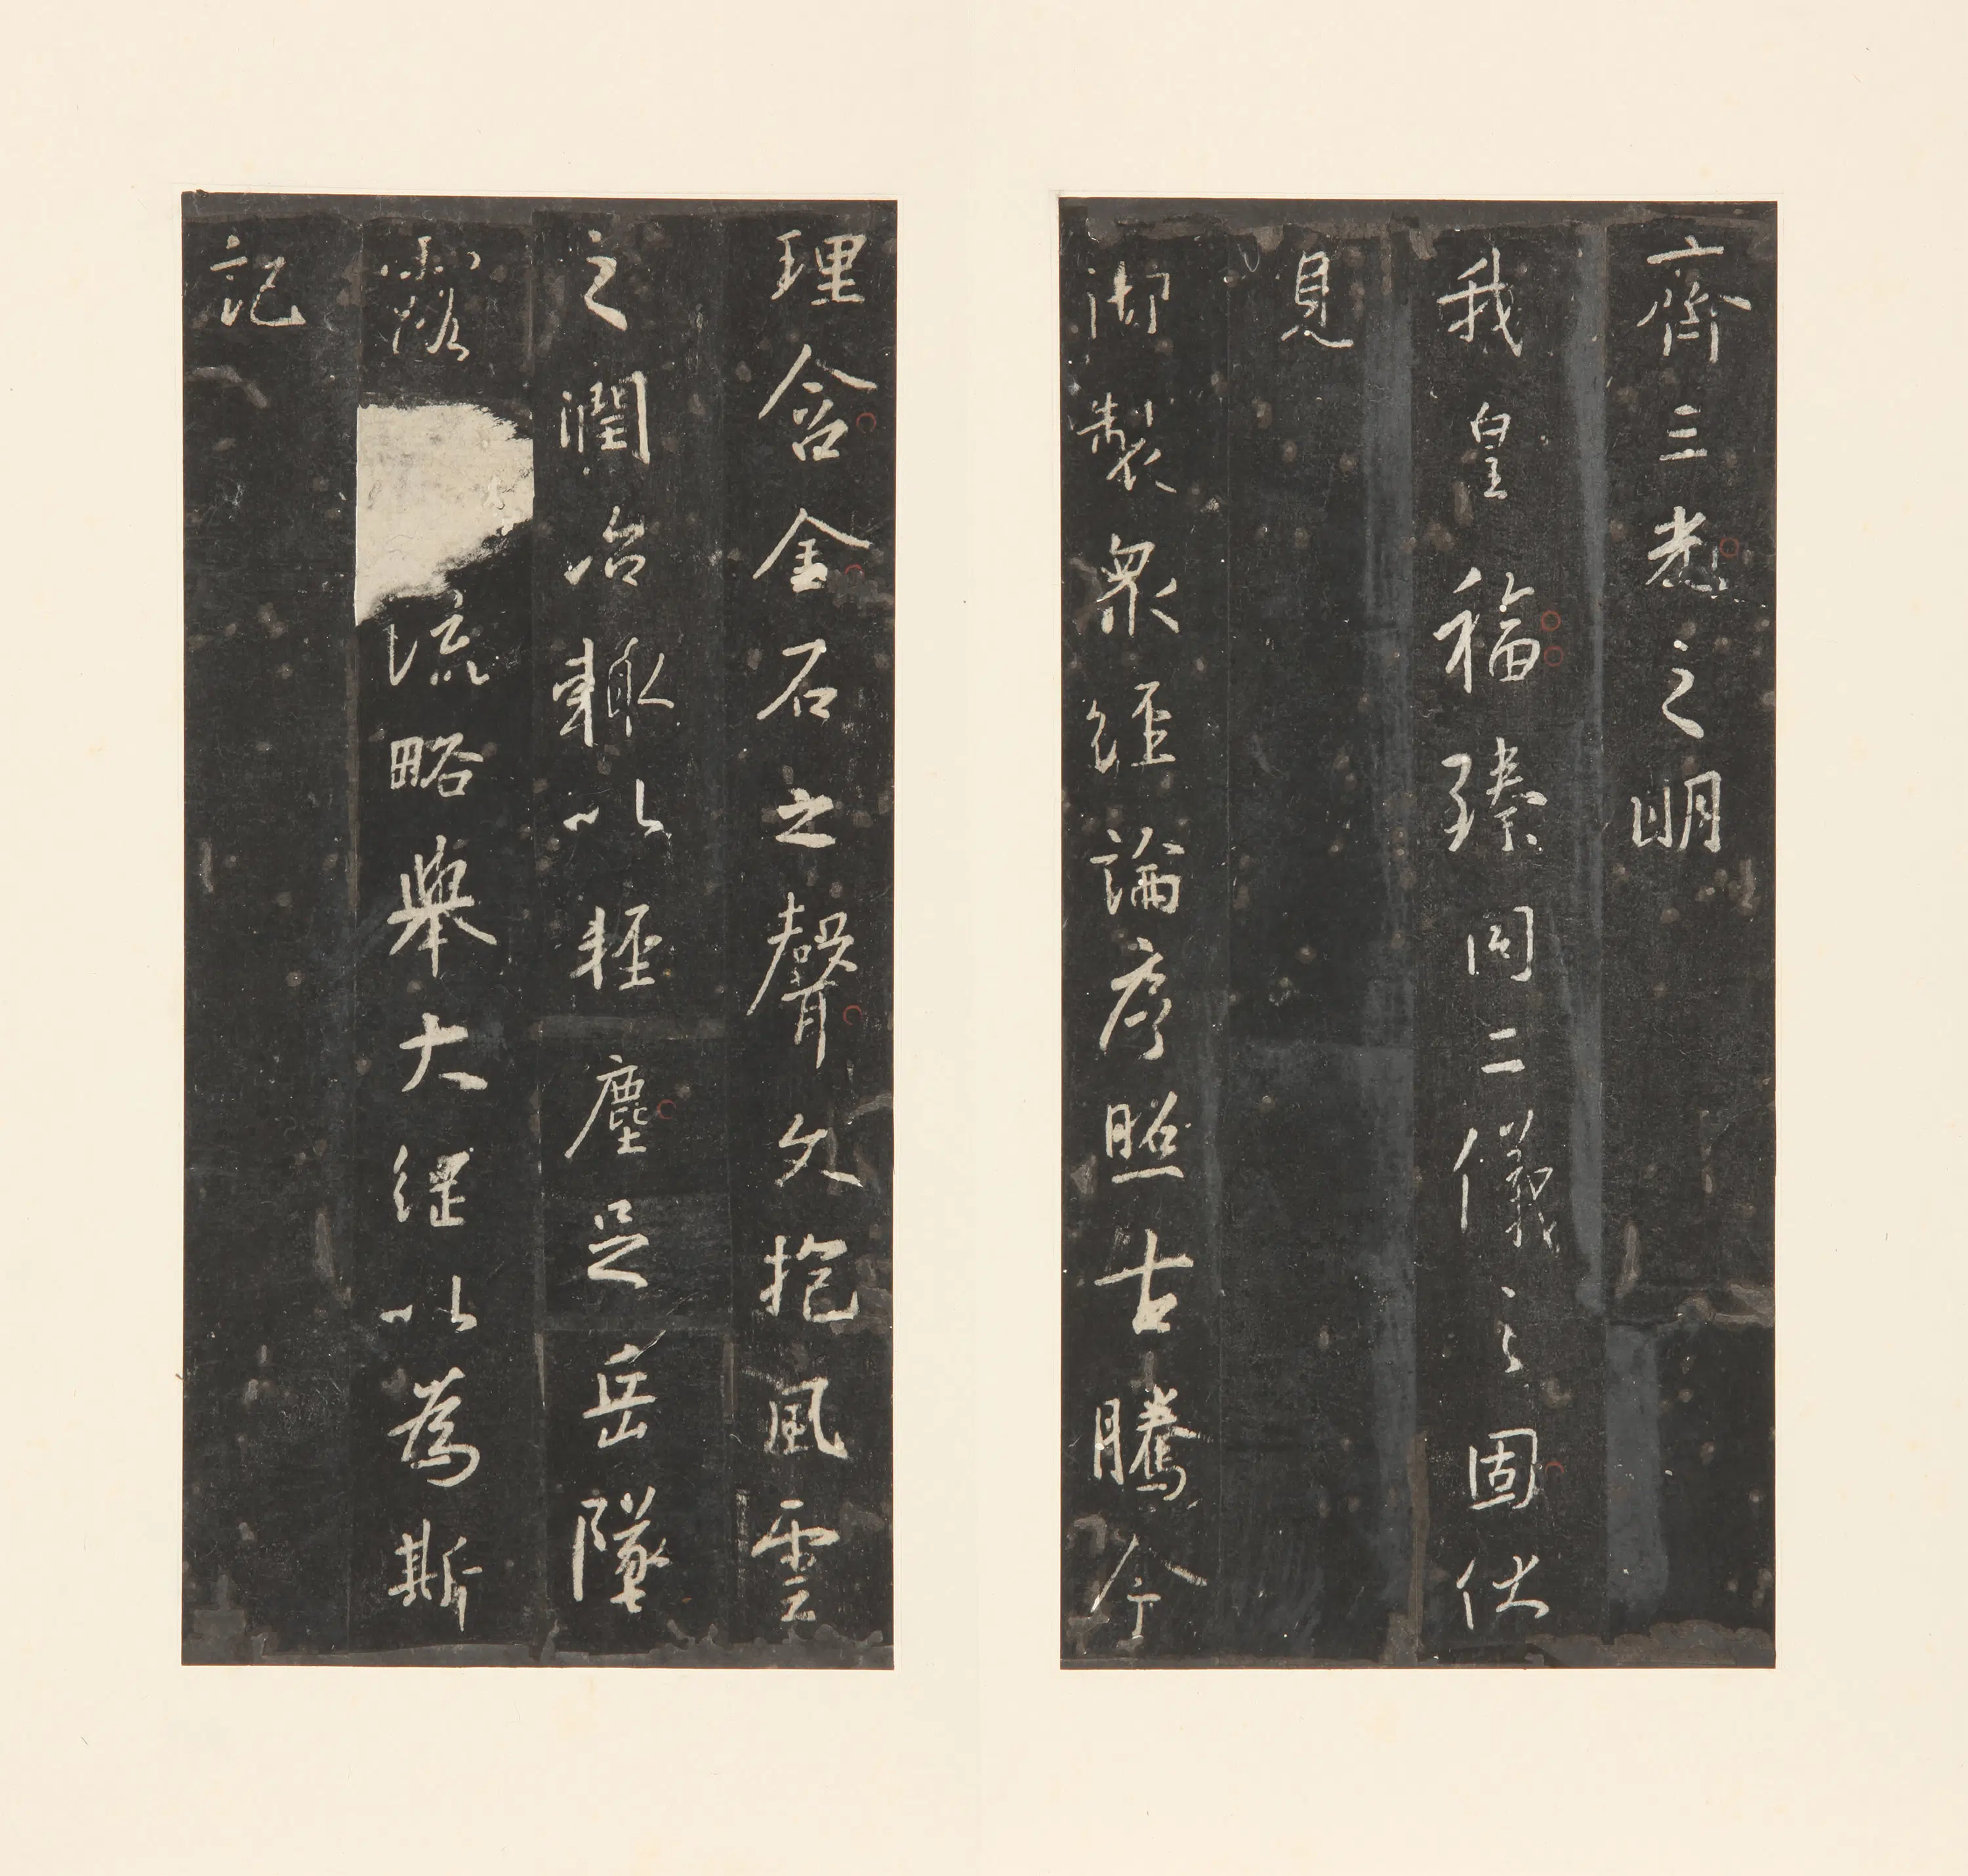 齊三光之明
我皇福臻同二儀之固伏
見
御製衆經論序照古騰今
理含金石之聲文抱風雲
之潤治輒以輕塵足岳墜
露流略舉大綱以為斯
記